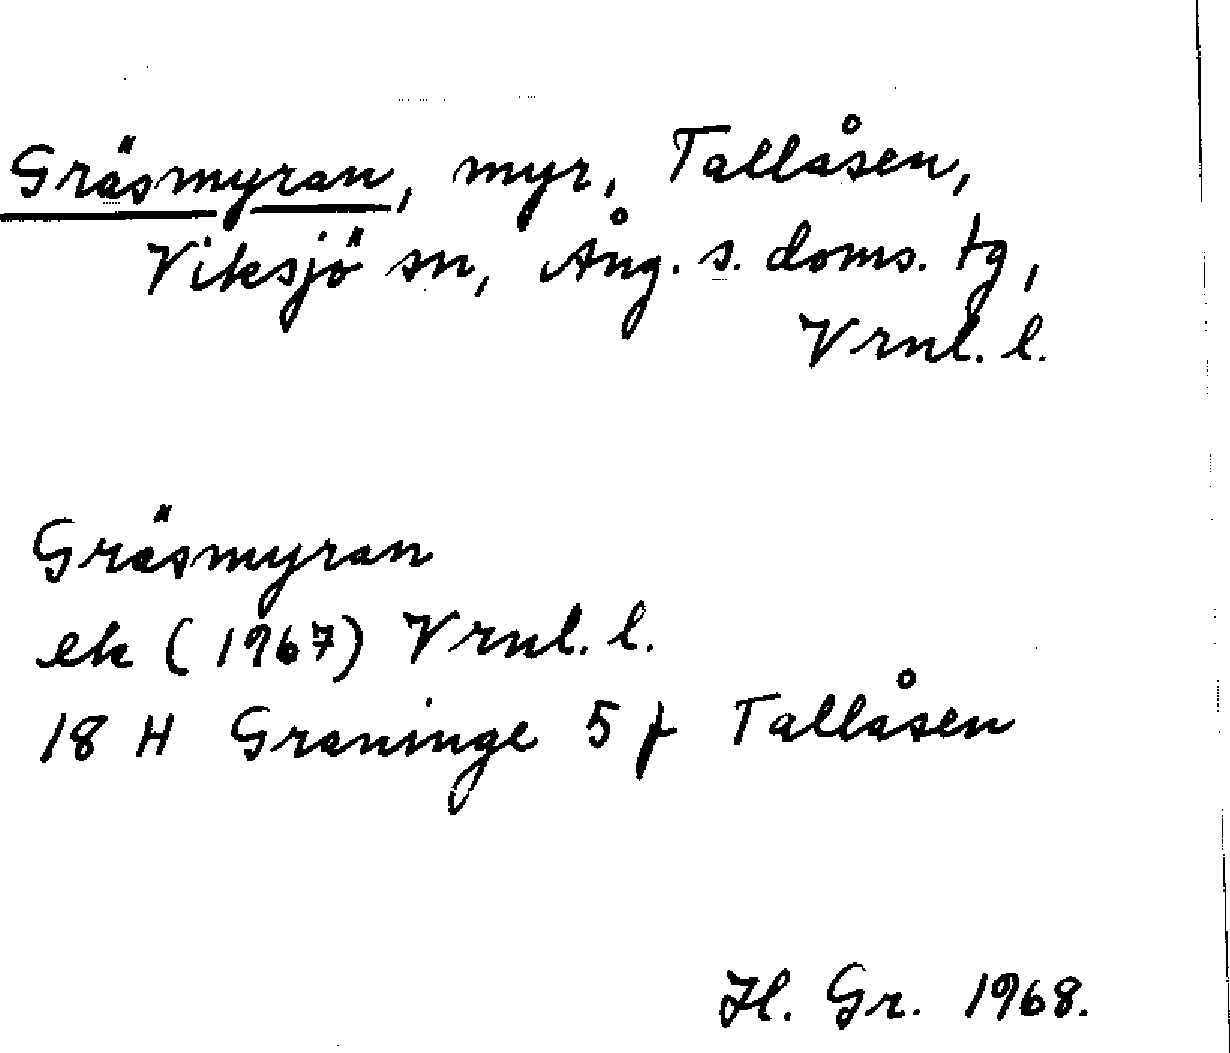 Gräsmyran, myr, Tallåsen,
Viksjö sn, Ång. s. doms. tg,
Vrnl. l.
Gräsmyran
ek (1967) Vrnl. l.
18 H Graninge 5 f Tallåsen
H. Gr. 1968.